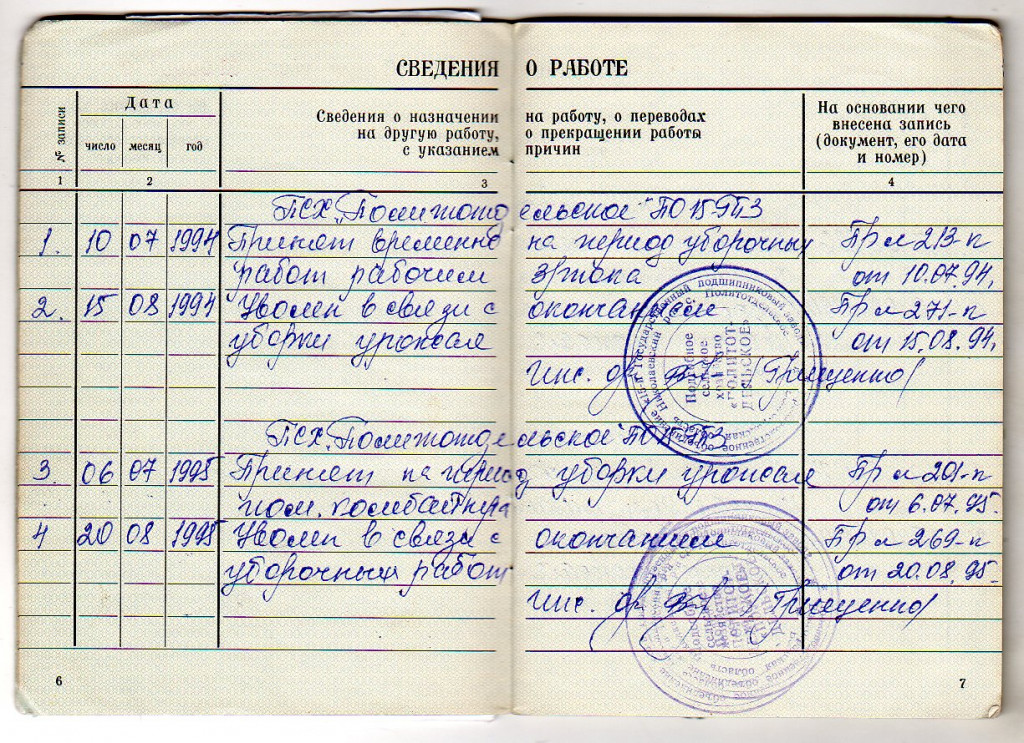 СВЕДЕНИЯ О РАБОТЕ
№ записи
Дата
число месяц год
Сведения о назначении на работу, о переводах
на другую работу, о прекращении работы
с указанием причин
На основании чего
внесена запись
(документ, его дата
и номер)
1 2 3 4
ПСХ „Политотдельское" ПО 15 ГПЗ
1. 10 07 1994 Принят временно на период уборочных Пр № 213-п
работ рабочим зр тока от 10.07.94.
2. 15 08 1994 Уволен в связи с окончанием Пр № 271-п
уборки урожая от 15.08.94.
Инс. (Грищенко)
Подсобное
сельское
хозяйство
«ПОЛИТОТ-
ДЕЛЬСКОЕ»
ПСХ „Политотдельское" ПО 15 ГПЗ
3. 06 07 1995 Принят на период уборки урожая Пр № 201-п
пом. комбайнера от 6.07.95.
4 20 08 1995 Уволен в связи с окончанием Пр № 269-п
уборочных работ от 20.08.95.
Инс. (Грищенко)
6 7